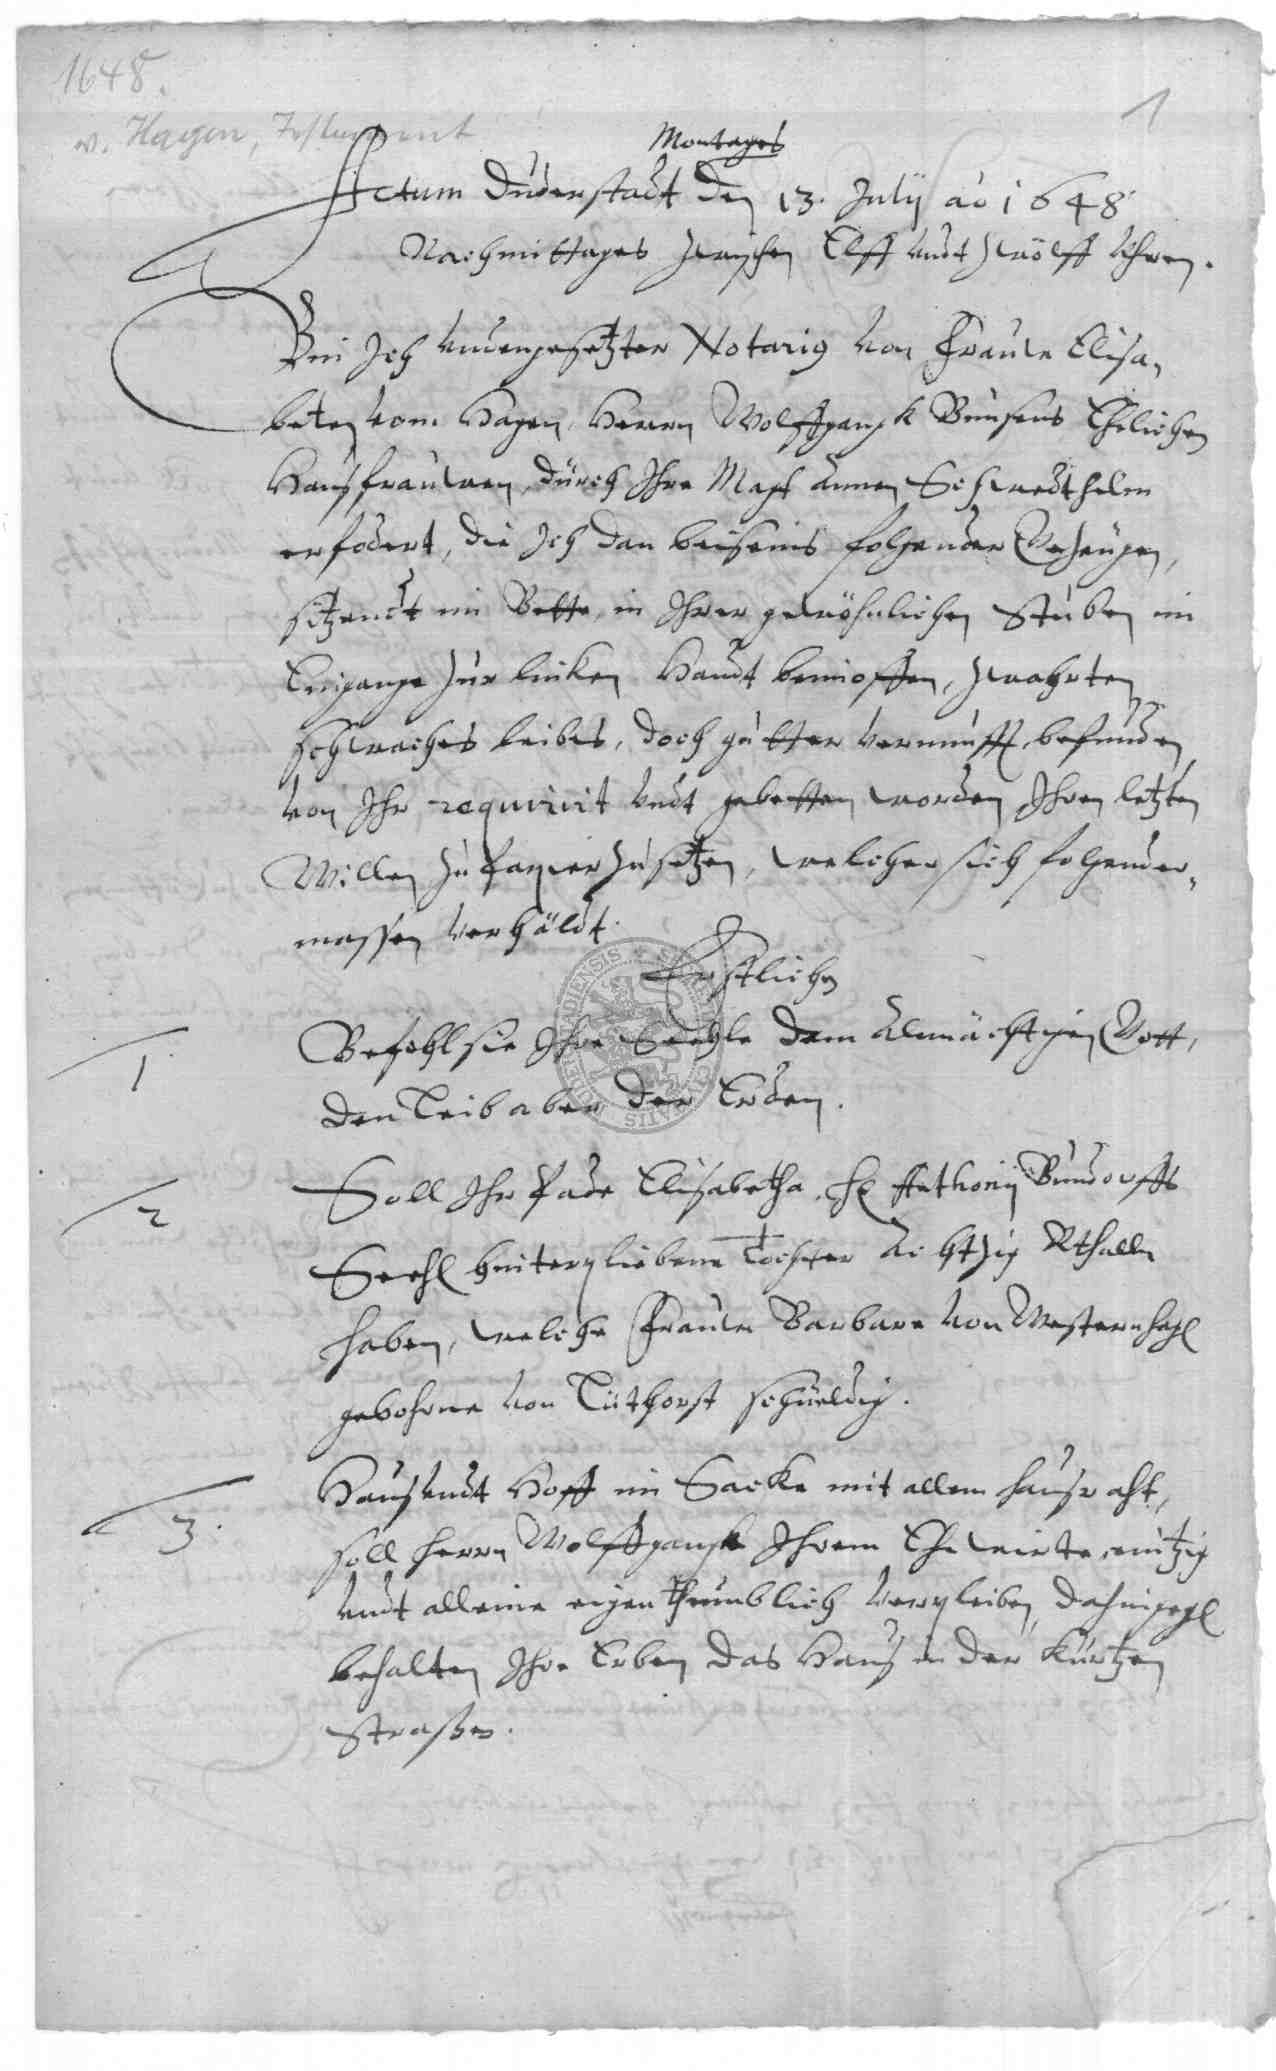 1648.
1
v. Hagen, Testament
Montages
Actum Duderstadt den 13. Julij ao 1648
Nachmittages zwischen Elff undt zwölff Uhren.
Bin Ich undengesetzter Notarius von Frauw Elisa,
beten vom Hagen, Herrn Wolffgangk Bunsens Ehelichen
Hausfrauwen, durch Ihre Magt Annen
erfodert, die Ich dan beiseins folgender Gezeugen,
sitzendt im Bette, in Ihrer gewöhnlichen Stuben im
Eingange zur linken Handt,
schwaches leibes, doch gutter vernunfft, befunden,
von Ihr requirirt undt gebetten worden Ihren letzten
Willen zu Papier zusetzen, welcher sich folgender,
massen verhäldt.
Erstlichen
1. Befohl sie Ihre Seehle dem Almächtigen Gott,
den Leib aber der Erden.
2 Soll Ihr Pade Elisabetha, H Anthonij Bundorffs
Seehl hinterpliebene Tochter Achtzig Rthaller
haben, welche Frauw Barbara von Westernhagen
gebohrne von Lüthorst schüeldig.
3. Haus undt Hoff im Sacke mit allem hausraht,
soll Herrn Wolffgangk Ihrem Ehewirte, eintzig
undt alleine eigenthumblich verpleiben, dahingegen
behalten Ihre Erben das Haus in der Kurtzen
Straßen.